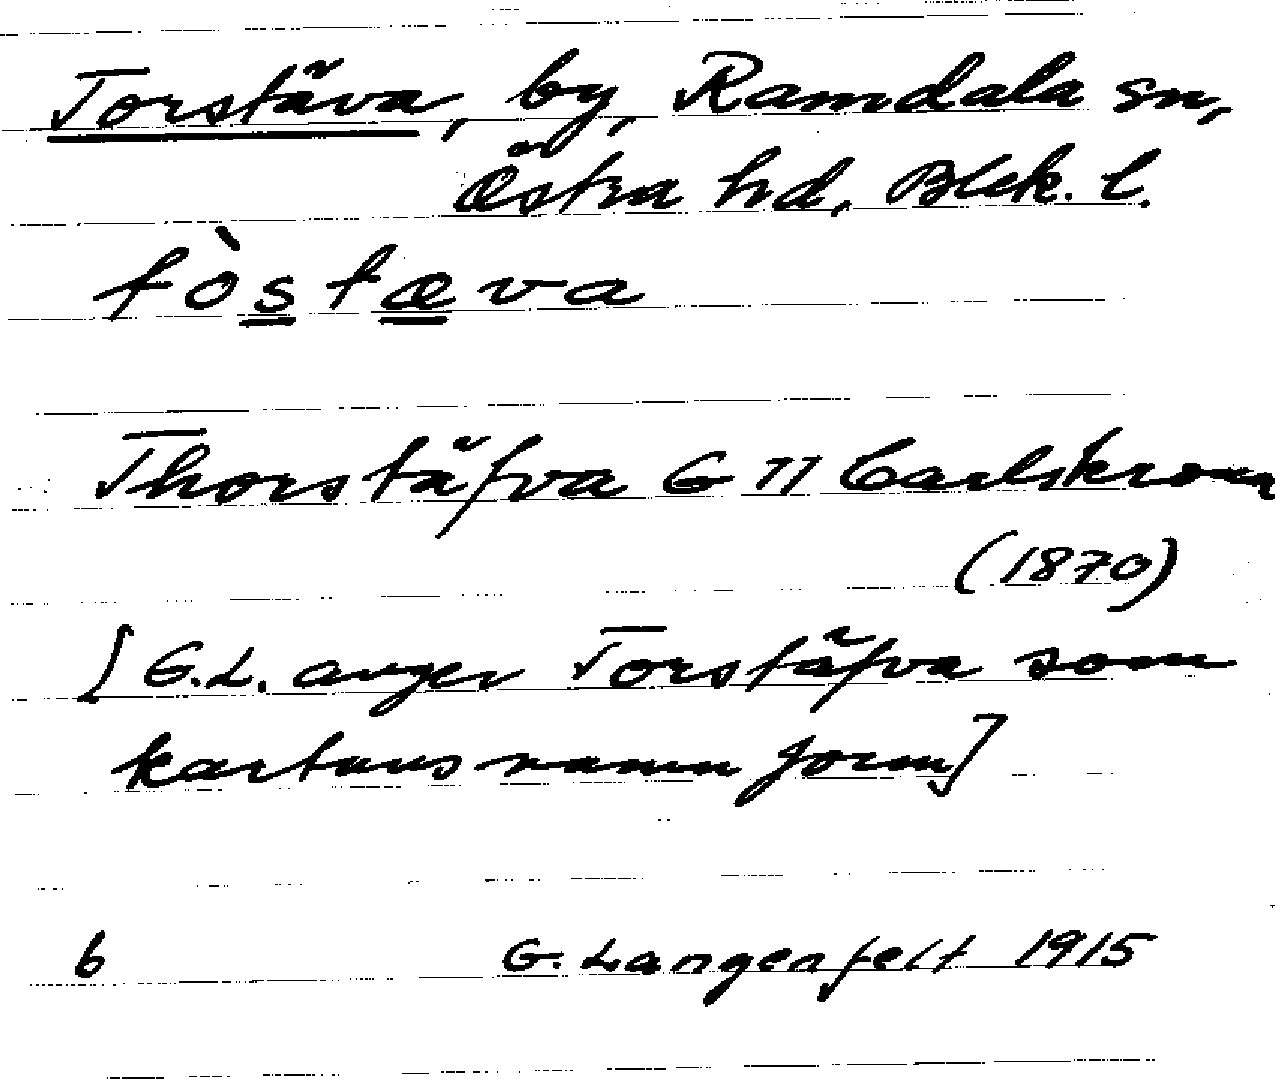 Torstäva, by, Ramdala sn,
Östra hd, Blek. l.
tòstæva
Thorstäfva G 11 Carlskrona
(1870)
[G.L. anger Torstäfva som
kartans namnform]
6 G. Langenfelt 1915